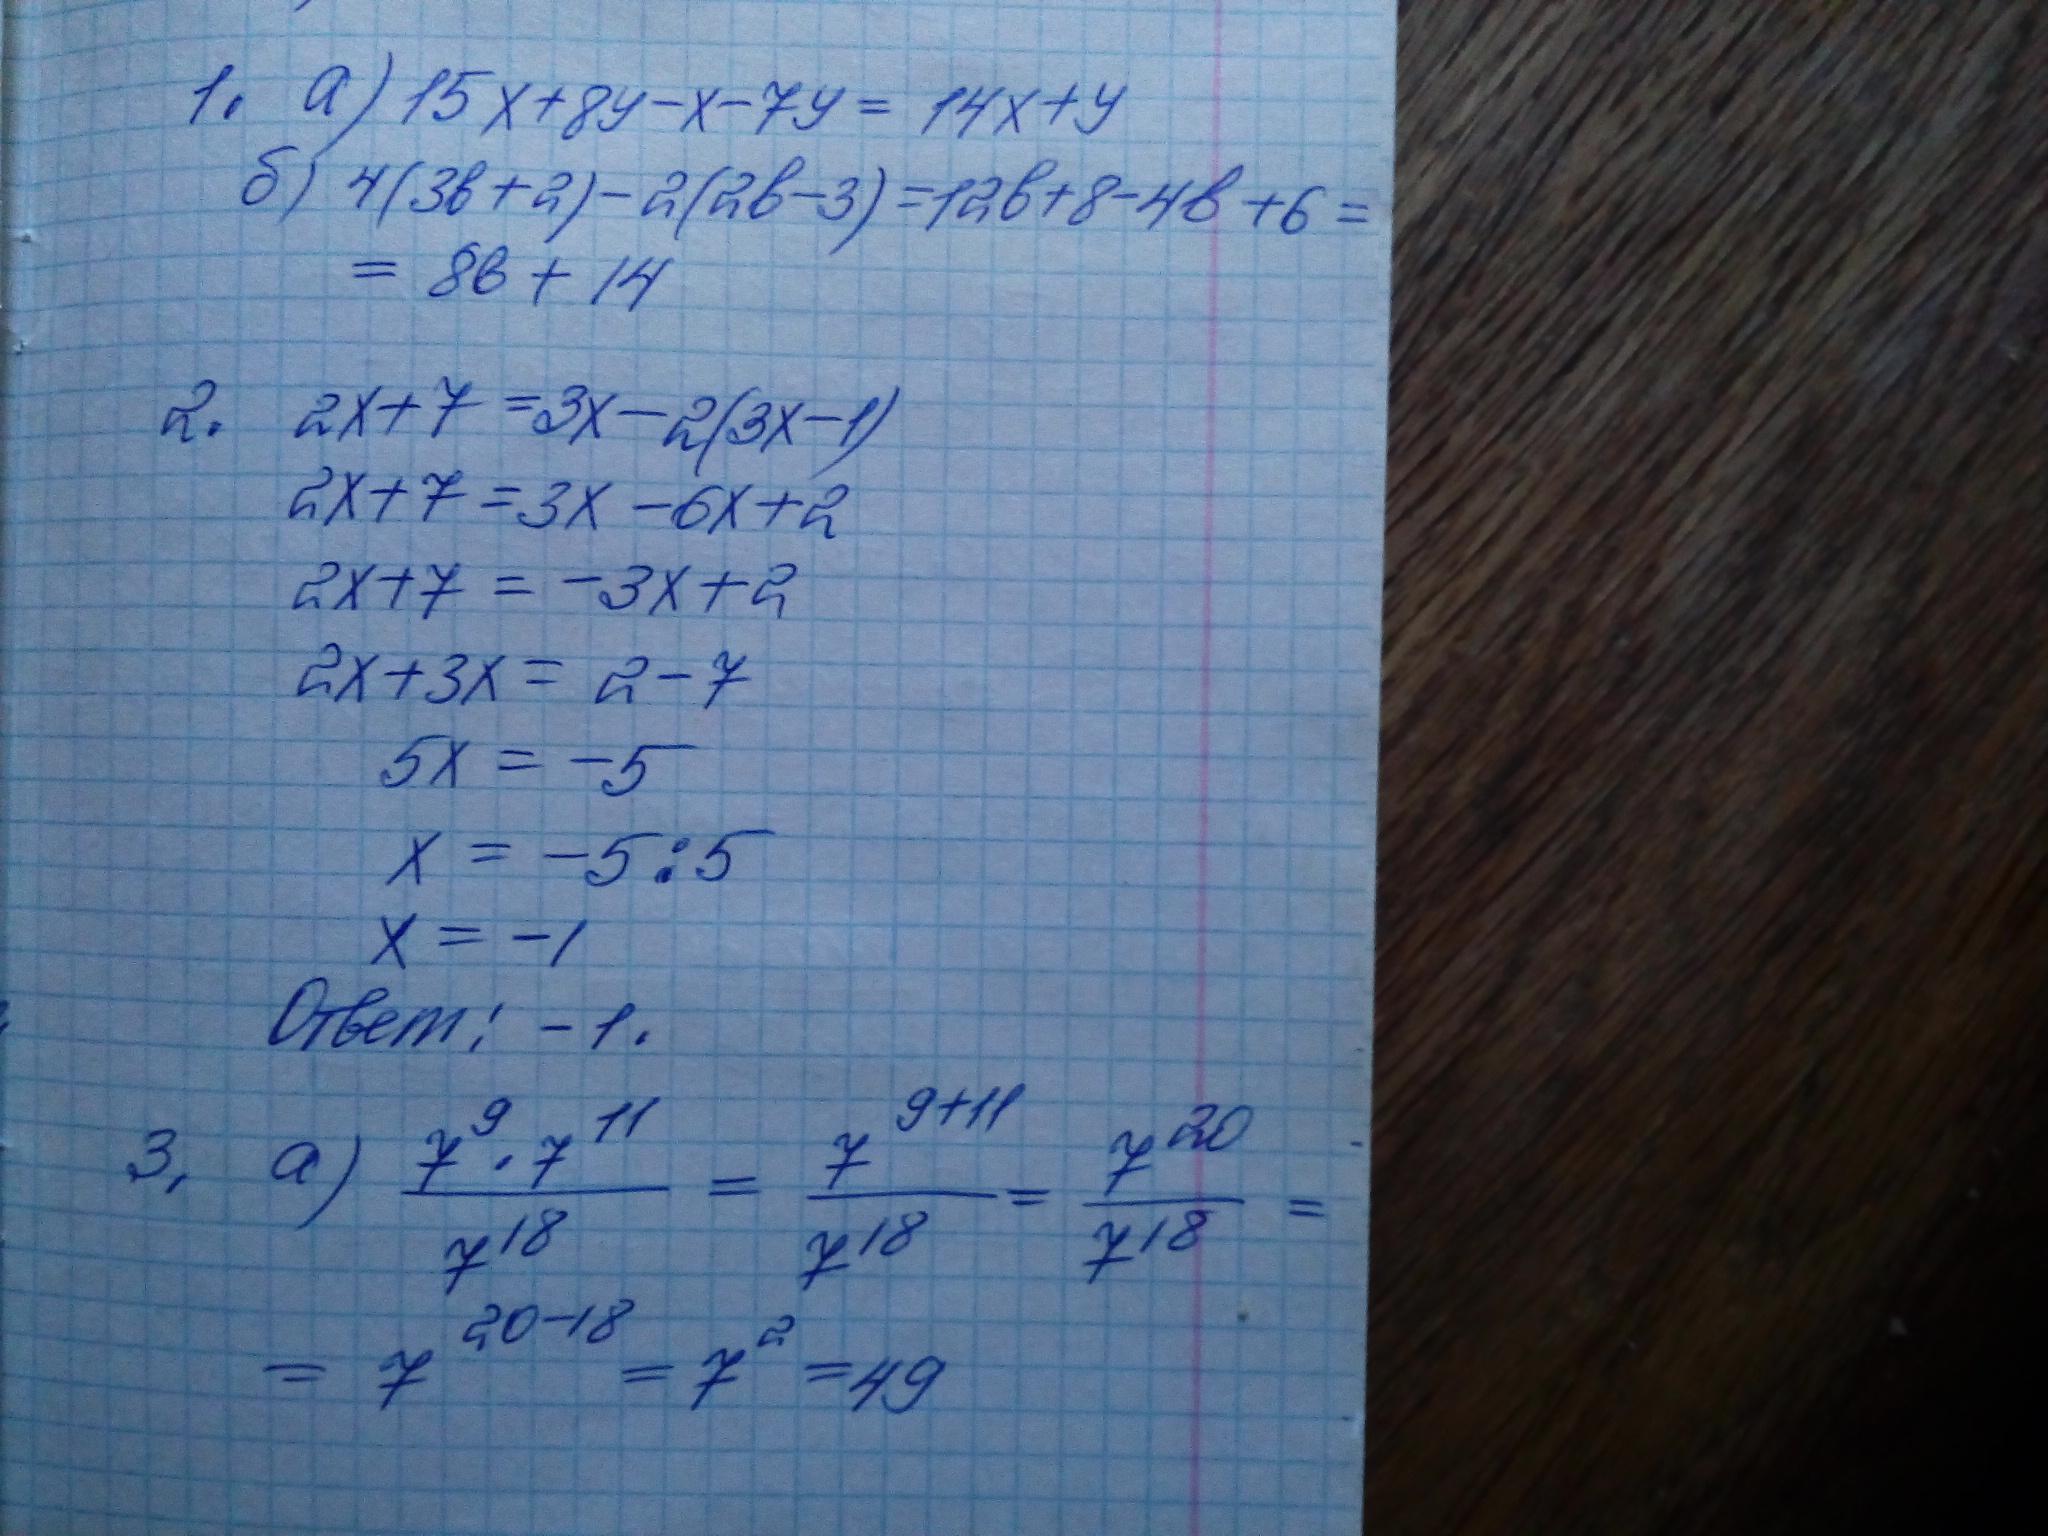 1. а) 15x+8y-x-7y= 14x+y
б) 4(3в+2)-2(2в-3)=12в+8-4в+6=
= 8в+14
2. 2x+7=3x-2(3x-1)
2x+7=3x-6x+2
2x+7=-3x+2
2x+3x=2-7
5x=-5
x=-5:5
x=-1
Ответ: -1.
3. а) (7⁹·7¹¹)/7¹⁸ = 7⁹⁺¹¹/7¹⁸ = 7²⁰/7¹⁸ =
= 7²⁰⁻¹⁸ = 7² = 49